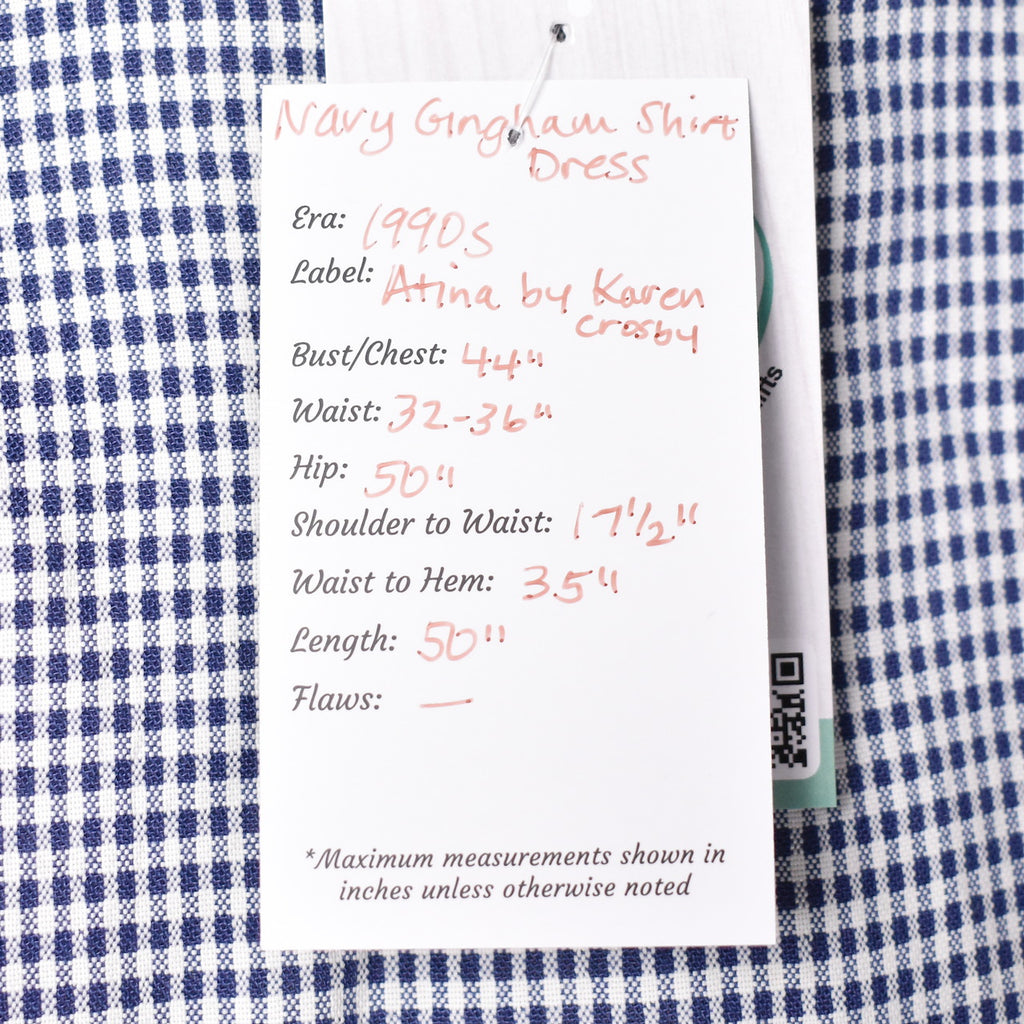 Navy Gingham Shirt
Dress
Era: 1990s
Label: Atina by Karen
crosby
Bust/Chest: 44"
Waist: 32-36"
Hip: 50"
Shoulder to Waist: 17 1/2"
Waist to Hem: 35"
Length: 50"
Flaws: —
*Maximum measurements shown in
inches unless otherwise noted